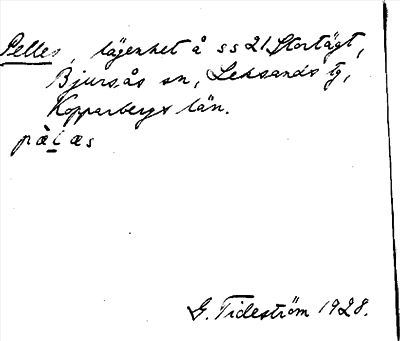 Pelles, lägenhet å ss 21 Stortägt,
Bjursås sn, Leksands tg,
Kopparbergs län.
pàḷæs
G. Tideström 1928.